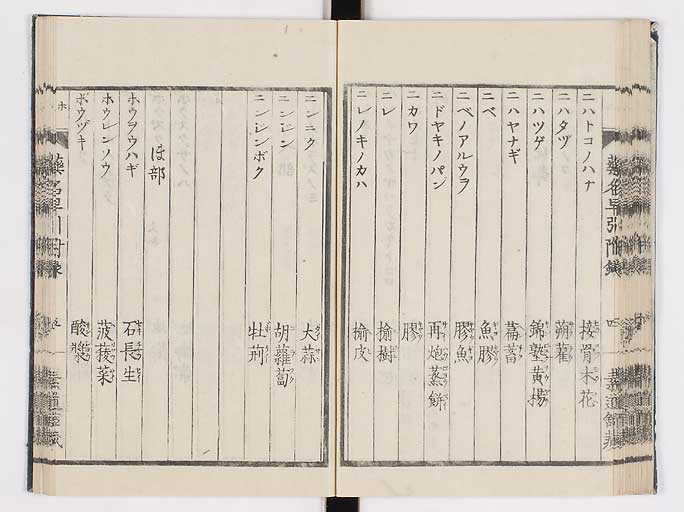 ニハトコノハナ 接骨木花
ニハタヅ 蒴藋
ニハツゲ 錦熟黄楊
ニハヤナギ 萹蓄
ニベ 魚膠
ニベノアルウヲ 膠魚
ニドヤキノパン 再炮蒸餅
ニカワ 膠
ニレ 楡樹
ニレノキノカハ 楡皮
ニンニク 大蒜
ニンジン 胡蘿蔔
ニンジンボク 牡荊
ほ部
ホウヲウハギ 石長生
ホウレンソウ 菠薐菜
ホウヅキ 酸漿
ホ
藥名早引附録